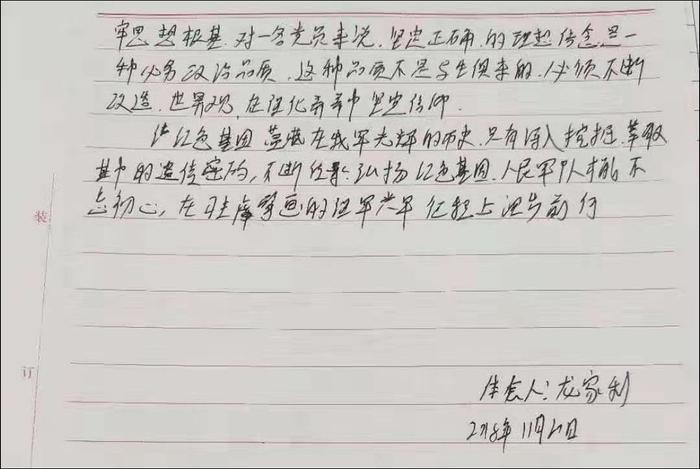 牢思想根基。对一名党员来说,坚定正确的理想信念是一
种必务政治品质,这种品质不是与生俱来的,必须不断
改造世界观,在强化养中坚定信仰.
红色基因蕴藏在我军光辉的历史,只有深入挖掘,萃取
其中的遗传密码,不断红色基因,人民军队才能不
忘初心,在擘画的强军兴军征程上前行
装
订
体会人:龙家利
2018年11月21日